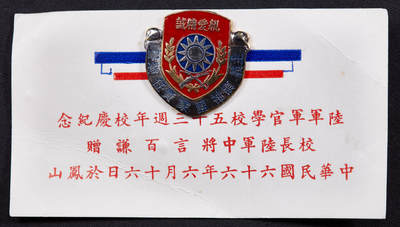 親愛精誠
陸軍軍官學校五十三週年校慶紀念
校長陸軍中將言百謙贈
中華民國六十六年六月十六日於鳳山